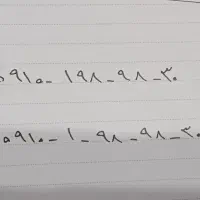 ۰۹۱۰-۱۹۸-۹۸-۳۰
۰۹۱۰-۱-۹۸-۹۸-۳۰